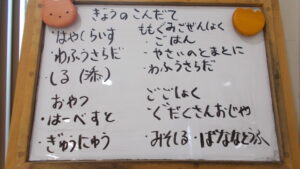 きょうのこんだて
・はやしらいす
・わふうさらだ
・しる(添)
おやつ
・はーべすと
・ぎゅうにゅう
ももぐみごぜんしょく
・ごはん
・やさいのとまとに
・わふうさらだ
ごごしょく
・ぐだくさんおじや
・みそしる・ばななとうふ